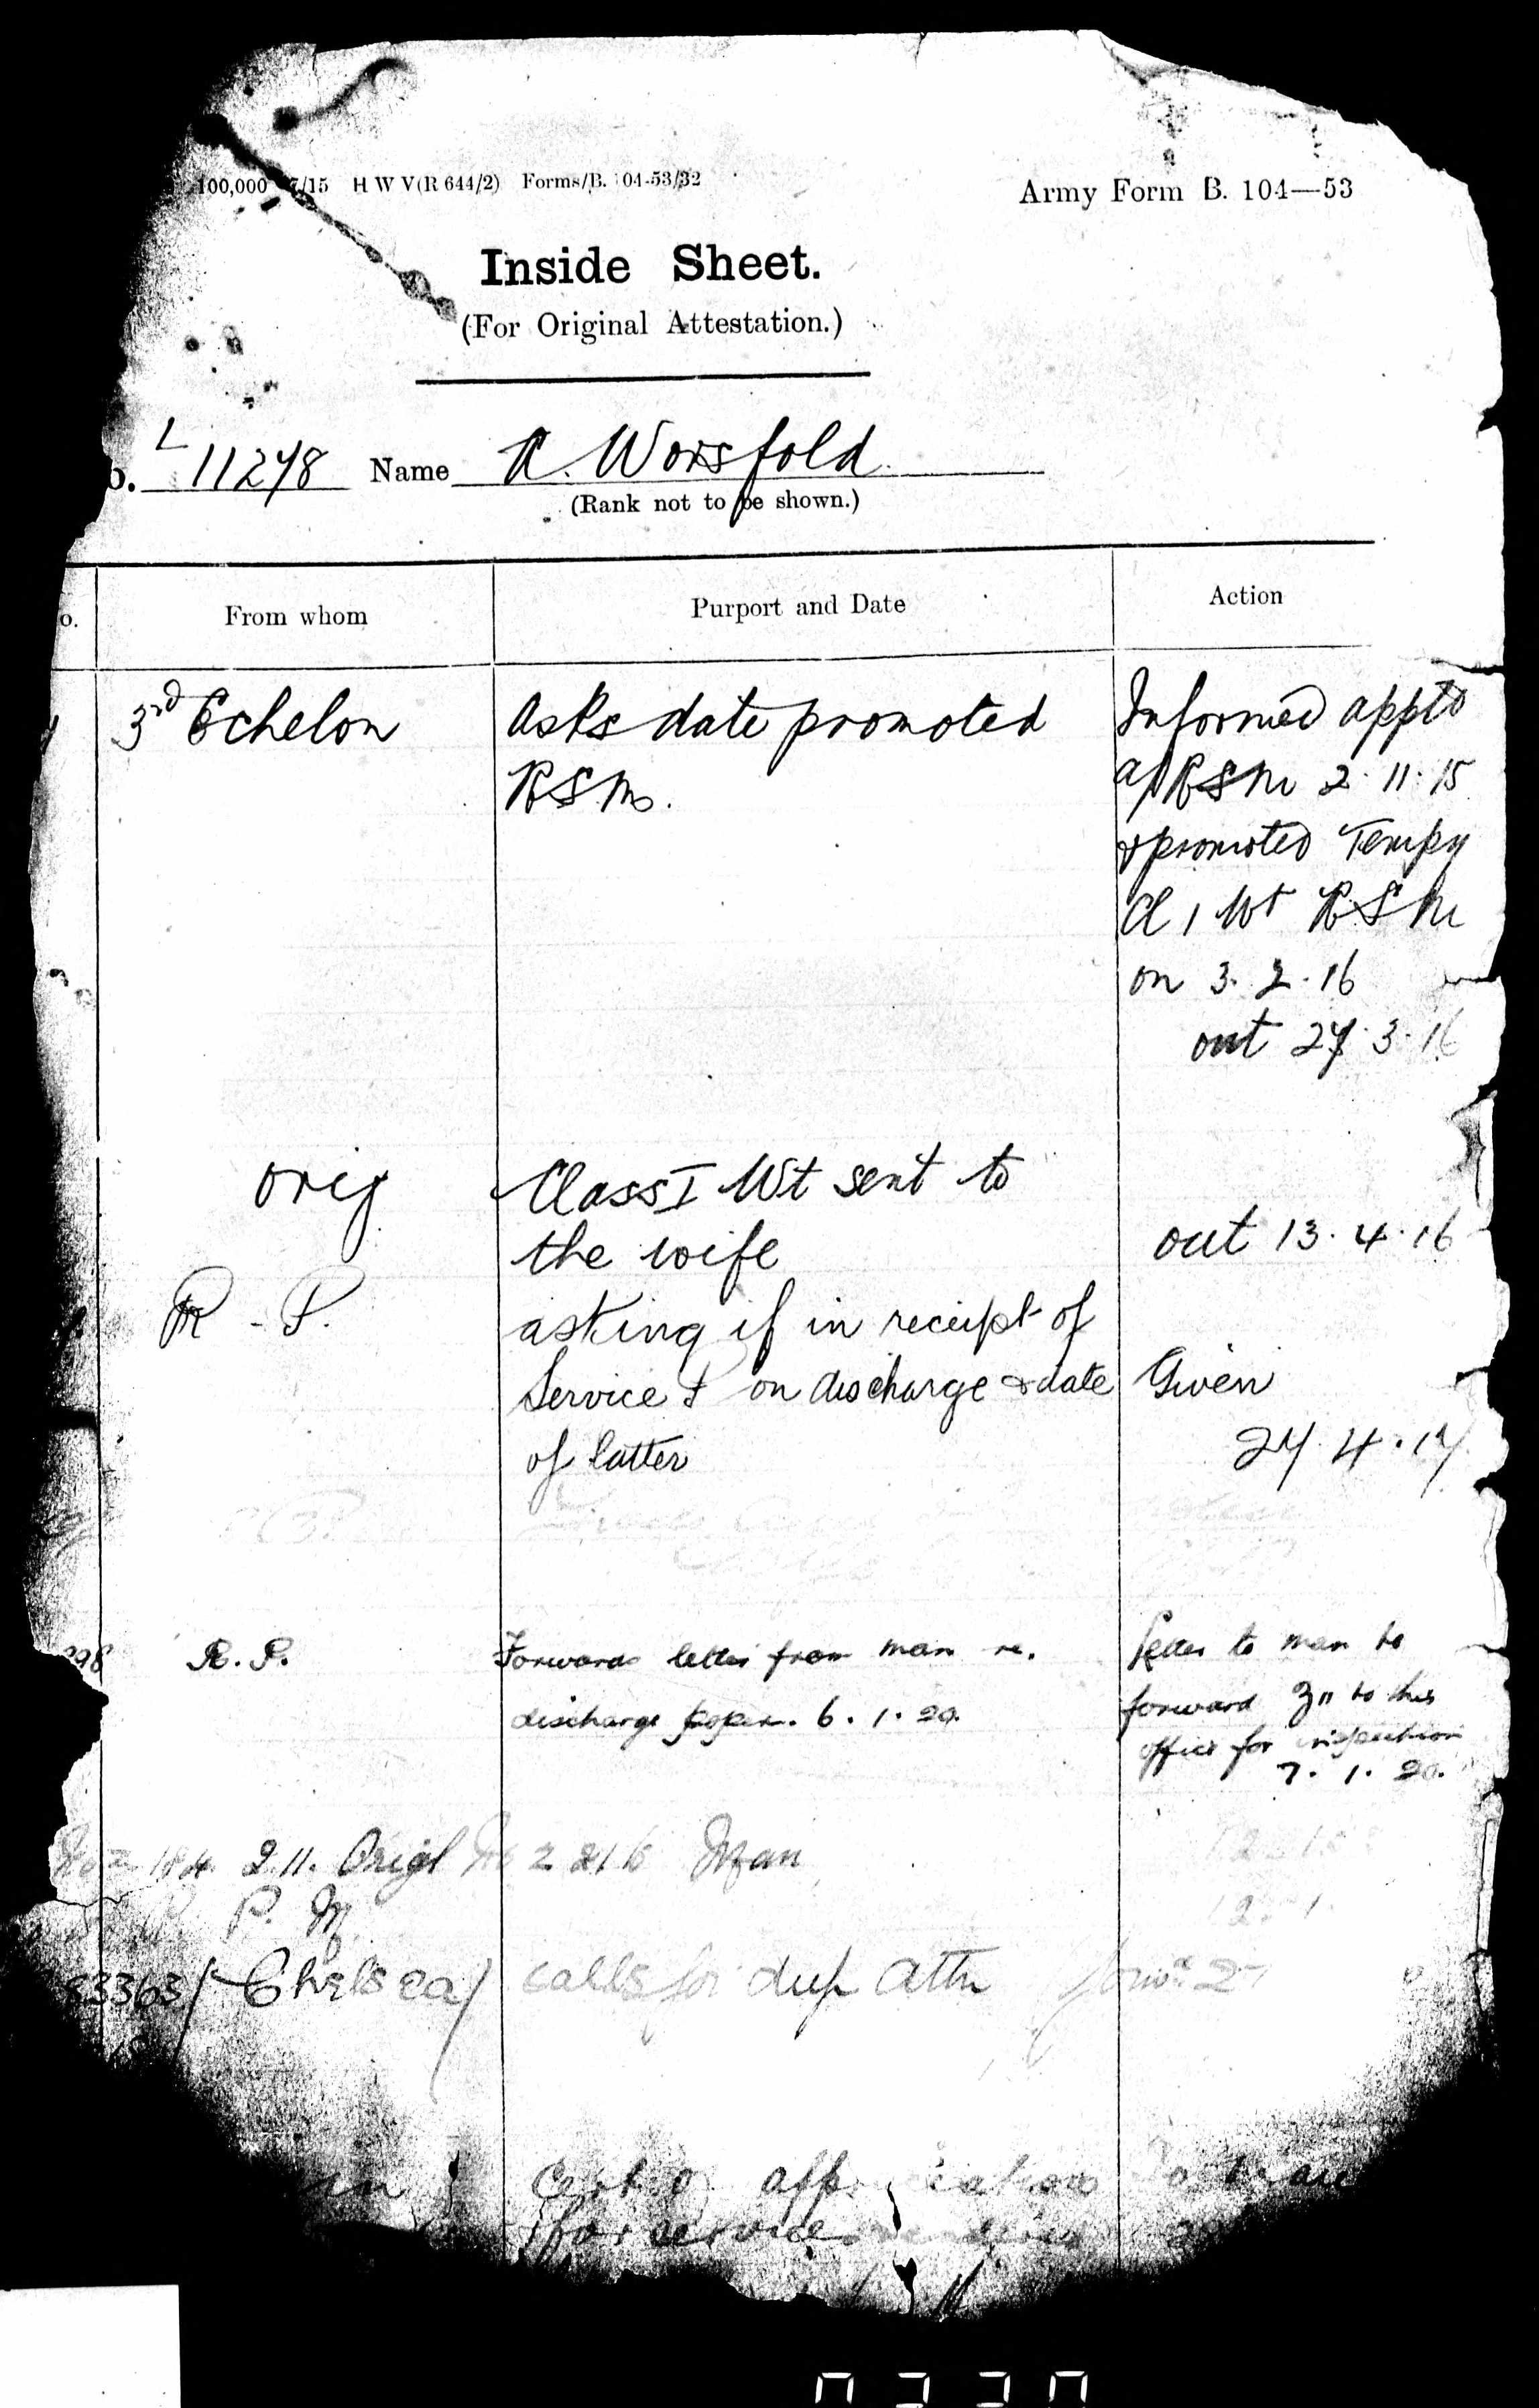 100,000 7/15 H W V(R 644/2) Forms/B. 104-53/32
Army Form B. 104—53
Inside Sheet.
(For Original Attestation.)
o. L 11278 Name R. Worsfold
(Rank not to be shown.)
o. From whom Purport and Date Action
3rd Echelon asks date promoted Informed apptd
RSM. a/RSM 2.11.15
& promoted Tempy
Cl 1 Wt RSM
on 3.2.16
out 27.3.16
orig Class I Wt sent to
the wife out 13.4.16
R - P. asking if in receipt of
Service P on discharge & date Given
of latter 27.4.17
R.P. Forwards letter from man re. Letter to man to
discharge paper. 6.1.20. forward to this
office for inspection
7.1.20.
Origl 2216 Man
P. M.
83363/Chelsea/ calls for dup attn
for service
0330